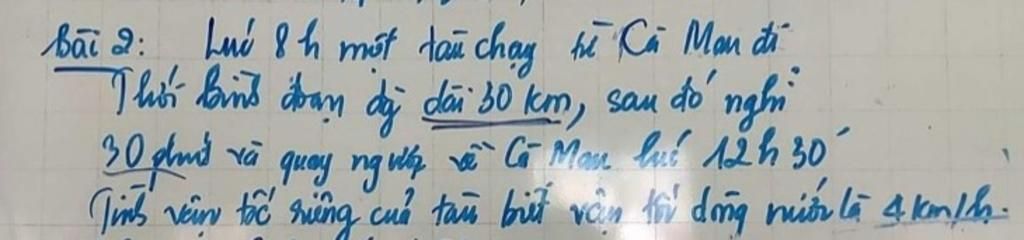 Bài 2: Lúc 8 h một tàu chạy từ Cà Mau đi
Thới Bình đoạn dài 30 km, sau đó nghỉ
30 phút và quay ngược về Cà Mau lúc 12h 30'
Tính vận tốc riêng của tàu biết vận tốc dòng nước là 4 km/h.